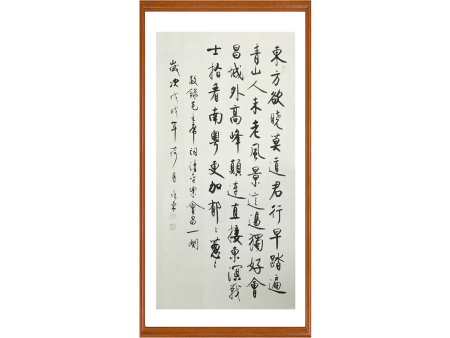 東方欲曉莫道君行早踏遍
青山人未老風景這邊獨好會
昌城外高峰顛連直接東溟戰
士指看南粵更加郁〻蔥〻
敬錄毛主席詞清平樂會昌一闋
歲次戊戌年荷月